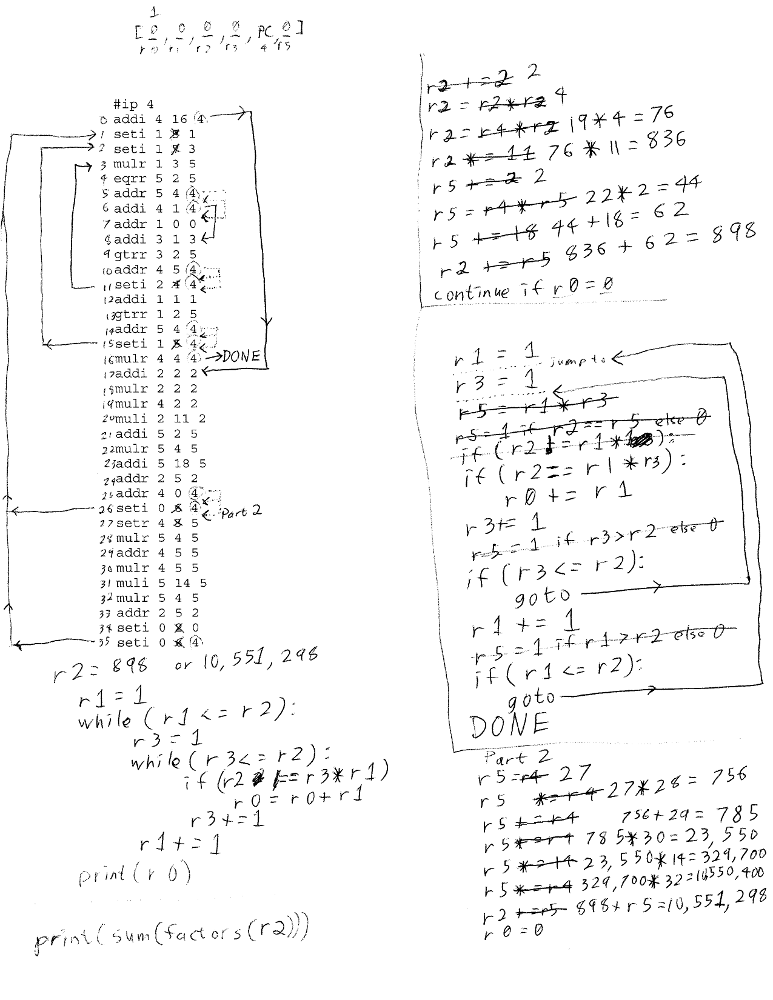 1
[ 0, 0, 0, 0, PC, 0 ]
r0 r1 r2 r3 4 r5
#ip 4
0 addi 4 16 4
1 seti 1 8 1
2 seti 1 3
3 mulr 1 3 5
4 eqrr 5 2 5
5 addr 5 4 4
6 addi 4 1 4
7 addr 1 0 0
8 addi 3 1 3
9 gtrr 3 2 5
10 addr 4 5 4
11 seti 2 4
12 addi 1 1 1
13 gtrr 1 2 5
14 addr 5 4 4
15 seti 1 4
16 mulr 4 4 4 → DONE
17 addi 2 2 2
18 mulr 2 2 2
19 mulr 4 2 2
20 muli 2 11 2
21 addi 5 2 5
22 mulr 5 4 5
23 addi 5 18 5
24 addr 2 5 2
25 addr 4 0 4
26 seti 0 4 Part 2
27 setr 4 8 5
28 mulr 5 4 5
29 addr 4 5 5
30 mulr 4 5 5
31 muli 5 14 5
32 mulr 5 4 5
33 addr 2 5 2
34 seti 0 0
35 seti 0 4
r2 = 898 or 10,551,298
r1 = 1
while (r1 <= r2):
r3 = 1
while (r3 <= r2):
if (r2 == r3 * r1)
r0 = r0 + r1
r3 += 1
r1 += 1
print(r0)
print(sum(factors(r2)))
r2 += 2 2
r2 = r2*r2 4
r2 = r4*r2 19*4 = 76
r2 *= 11 76 * 11 = 836
r5 += 2 2
r5 = r4 * r5 22*2 = 44
r5 += 18 44+18 = 62
r2 += r5 836 + 62 = 898
continue if r0 = 0
r1 = 1 jump to
r3 = 1
r5 = r1 * r3
r5 = 1 if r2 == r5 else 0
if (r2 != r1 * ):
if (r2 == r1 * r3):
r0 += r1
r3 += 1
r5 = 1 if r3 > r2 else 0
if (r3 <= r2):
goto
r1 += 1
r5 = 1 if r1 > r2 else 0
if (r1 <= r2):
goto
DONE
Part 2
r5 = r4 27
r5 *= r4 27*28 = 756
r5 += r4 756+29 = 785
r5 *= r4 785*30 = 23,550
r5 *= 14 23,550*14 = 329,700
r5 *= r4 329,700*32 = 10,550,400
r2 += r5 898 + r5 = 10,551,298
r0 = 0